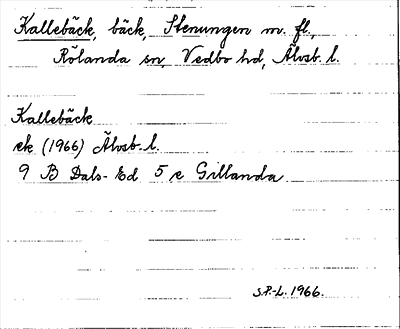 Kallebäck, bäck, Stenungen m. fl.,
Rölanda sn, Vedbo hd, Älvsb. l.
Kallebäck
ek (1966) Älvsb. l.
9 B Dals-Ed 5 e Gillanda
S.P.-L. 1966.